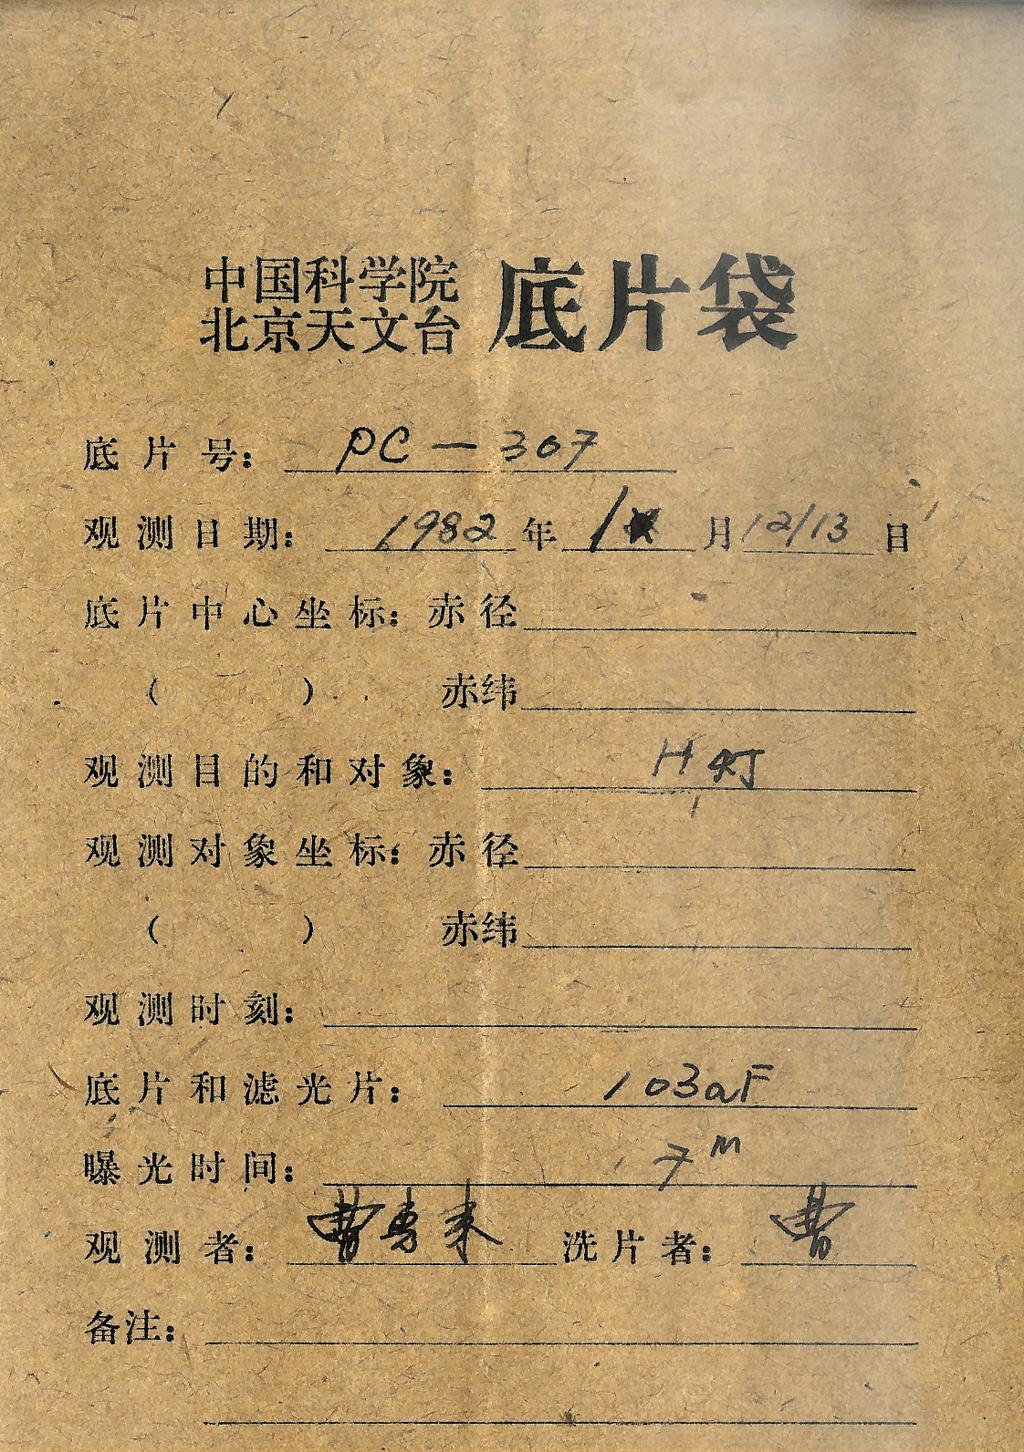 中国科学院
北京天文台 底片袋
底片号： PC-307
观测日期： 1982 年 1 月 12/13 日
底片中心坐标：赤径
（ ） 赤纬
观测目的和对象： H灯
观测对象坐标：赤径
（ ） 赤纬
观测时刻：
底片和滤光片： 103aF
曝光时间： 7m
观测者： 曹 来 洗片者： 曹
备注：